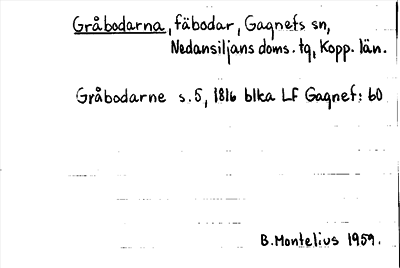 Gråbodarna, fäbodar, Gagnefs sn,
Nedansiljans doms. tg, Kopp. län.
Gråbodarne s.5, 1816 blka LF Gagnef: 60
B. Montelius 1959.